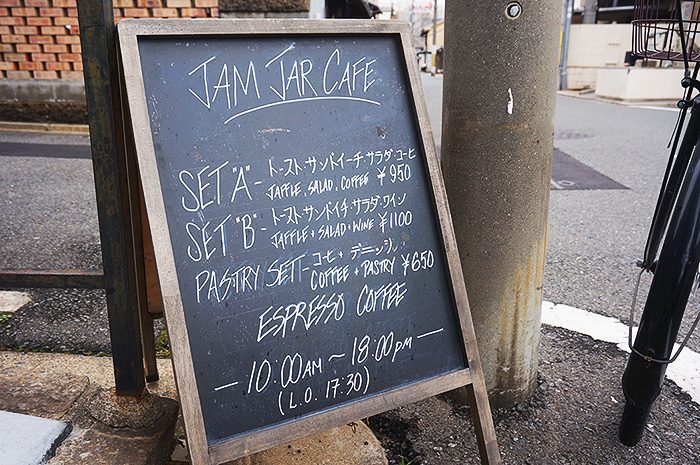 JAM JAR CAFE
SET "A" - トースト・サンドイーチ・サラダ・コーヒ
JAFFLE, SALAD, COFFEE ¥950
SET "B" - トースト・サンドイチ・サラダ・ワイン
JAFFLE + SALAD + WINE ¥1100
PASTRY SETT - コーヒ + デニッシ
COFFEE + PASTRY ¥650
ESPRESSO COFFEE
- 10:00AM ~ 18:00PM -
(L.O. 17:30)